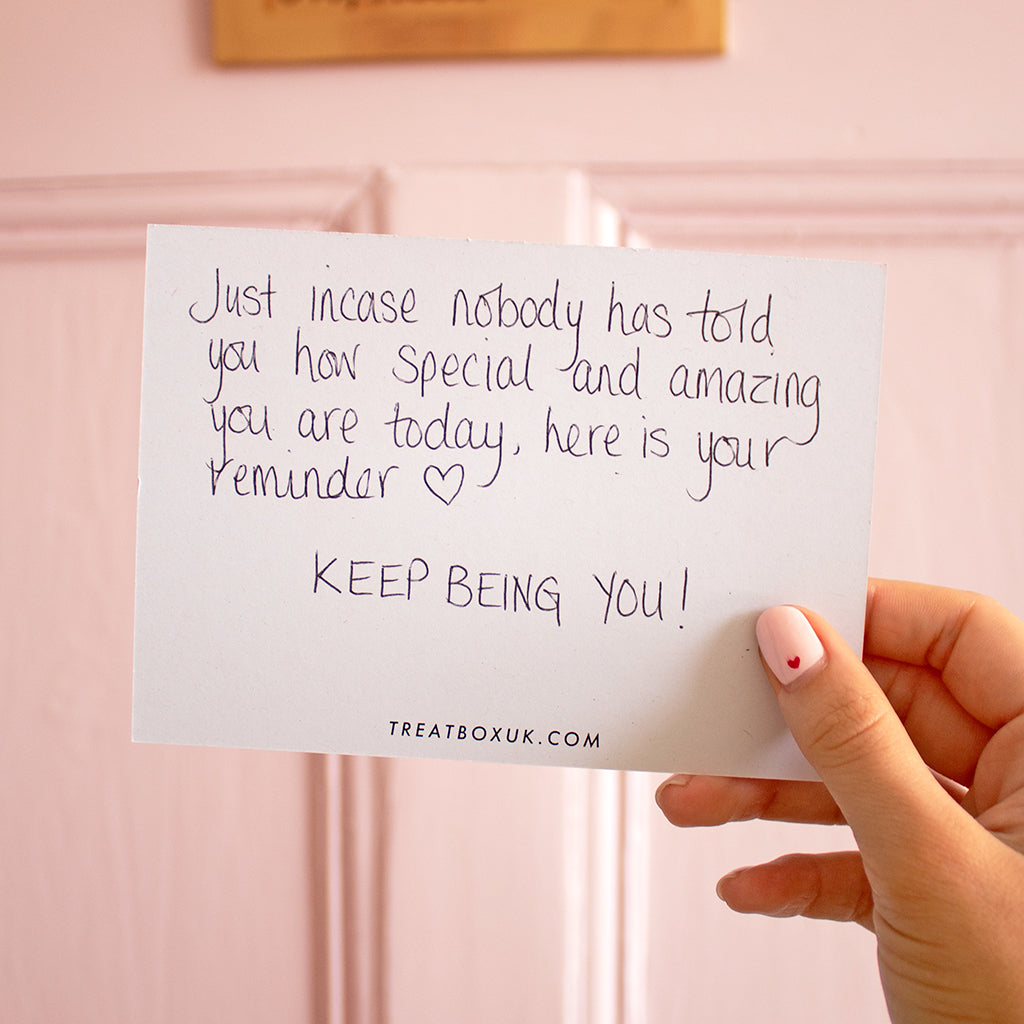 Just incase nobody has told
you how special and amazing
you are today, here is your
reminder ♡
KEEP BEING YOU!
TREATBOXUK.COM